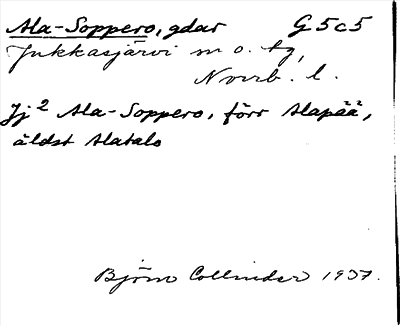 Ala-Soppero, gdar G5c5
Jukkasjärvi sn o. tg,
Nvrrb. l.
Jj² Ala-Soppero, förr Alapää,
äldst Alatalo
Björn Collinder 1937.